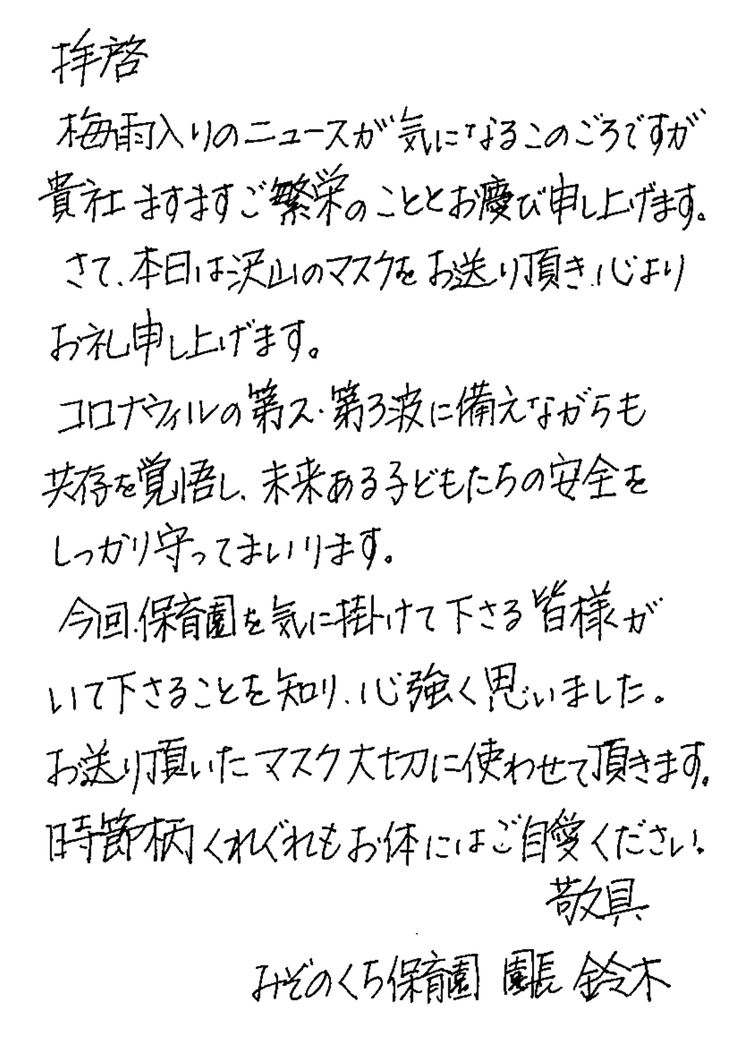 拝啓
梅雨入りのニュースが気になるこのごろですが
貴社ますますご繁栄のこととお慶び申し上げます。
さて、本日は沢山のマスクをお送り頂き、心より
お礼申し上げます。
コロナウィルの第2・第3波に備えながらも
共存を覚悟し、未来ある子どもたちの安全を
しっかり守ってまいります。
今回、保育園を気に掛けて下さる皆様が
いて下さることを知り、心強く思いました。
お送り頂いたマスク大切に使わせて頂きます。
時節柄くれぐれもお体にはご自愛ください。
敬具
みぞのくち保育園 園長 鈴木